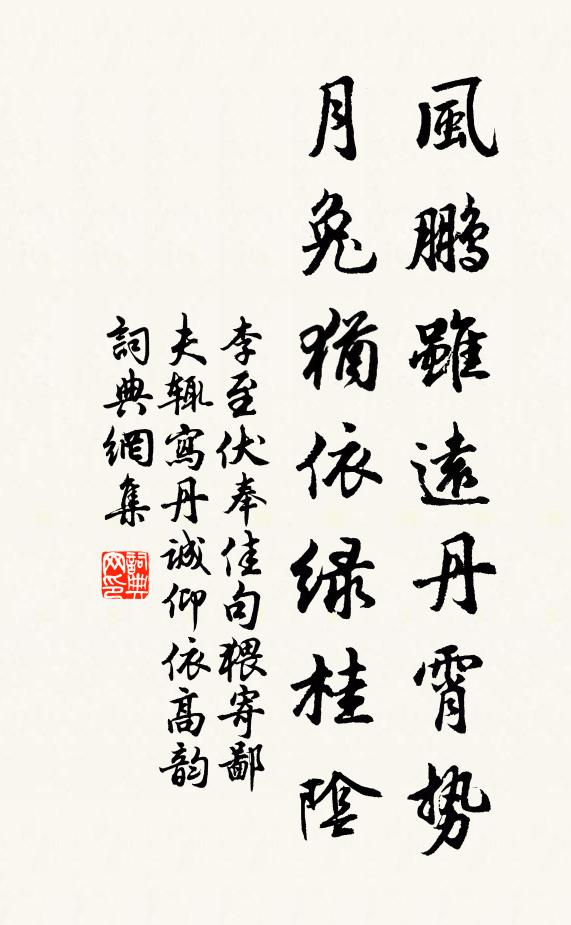 風鵬雖遠丹霄勢
月兔猶依緑桂陰
李至伏奉佳句猥寄鄙
夫輒寫丹誠仰依高韵
詞典網集
詞典
网印